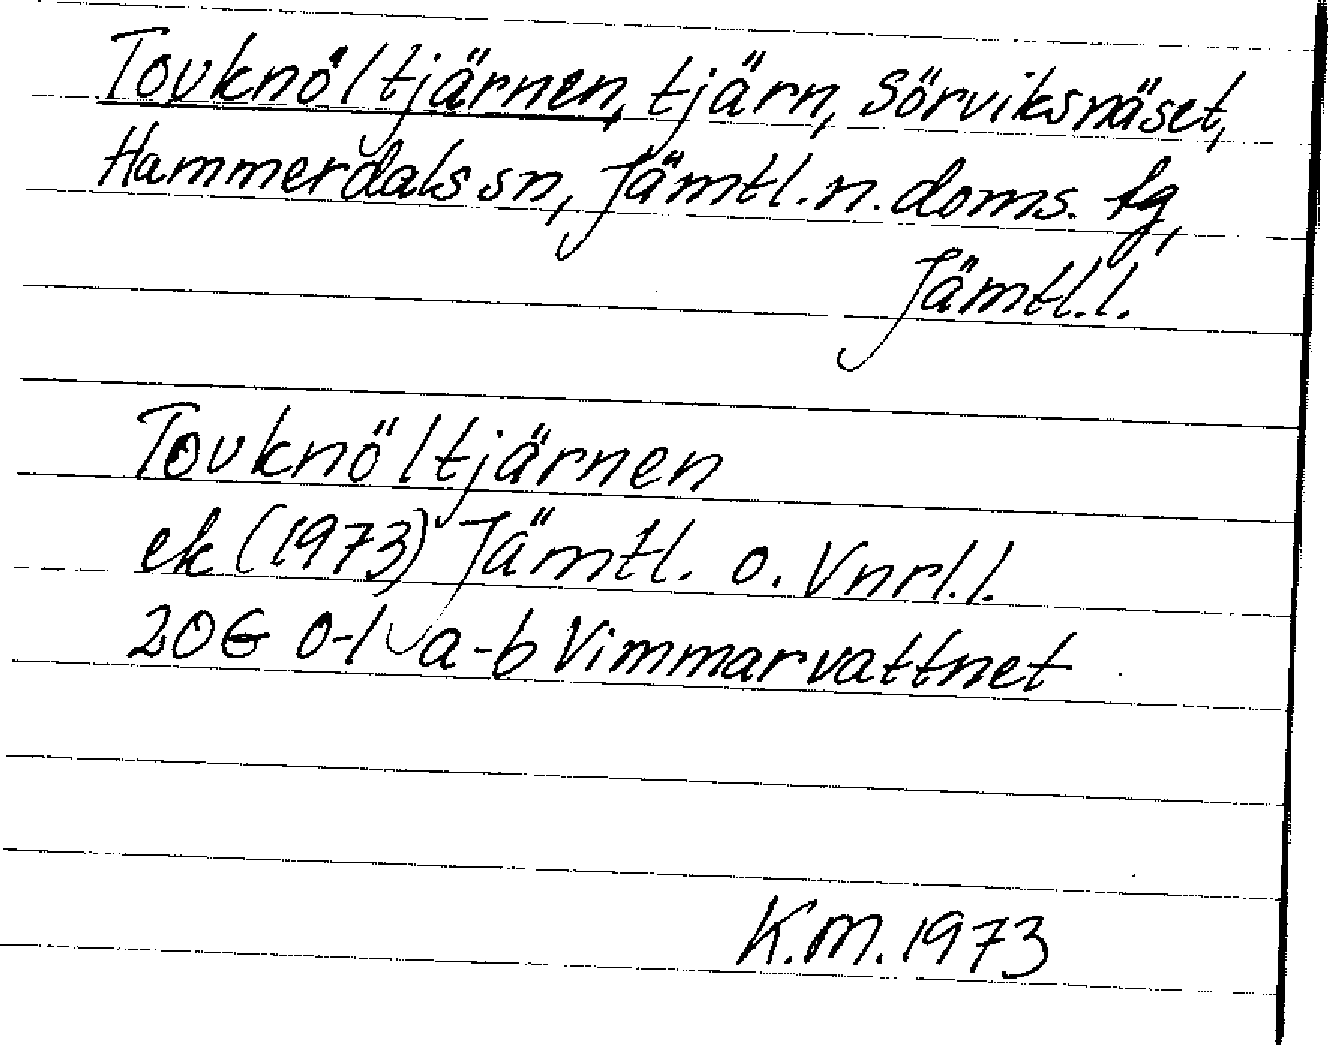 Tovknöltjärnen, tjärn, Sörviksnäset,
Hammerdals sn, Jämtl.n.doms. fg,
Jämtl.l.
Tovknöltjärnen
ek (1973) Jämtl. o. Vnrl.l.
20G 0-1 a-b Vimmarvattnet
K.M. 1973